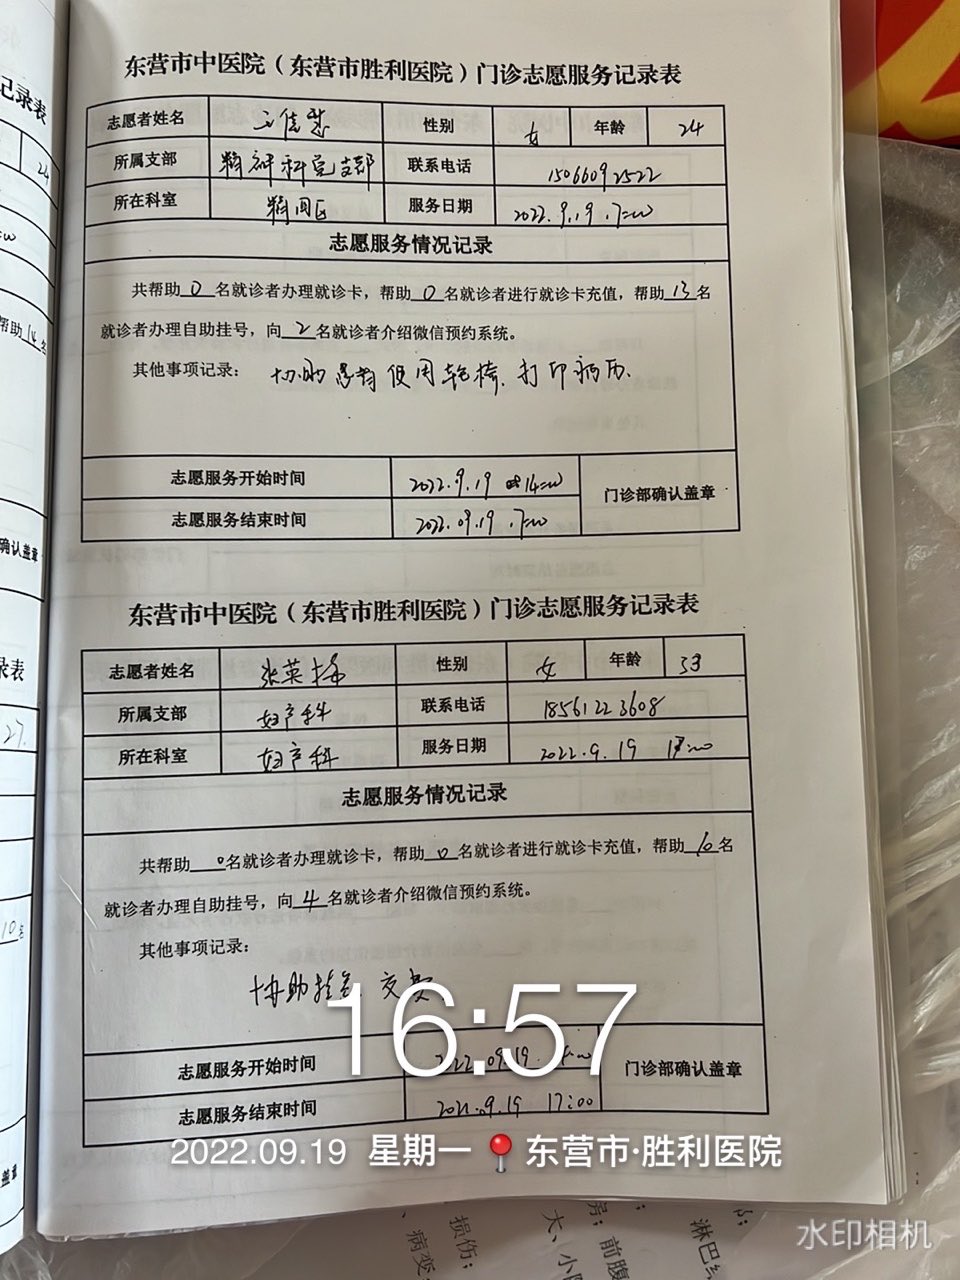 东营市中医院（东营市胜利医院）门诊志愿服务记录表
志愿者姓名 性别 女 年龄 24
所属支部 精神科党支部 联系电话 15066092522
所在科室 服务日期 2022.9.19.17:00
志愿服务情况记录
共帮助0名就诊者办理就诊卡，帮助0名就诊者进行就诊卡充值，帮助13名
就诊者办理自助挂号，向2名就诊者介绍微信预约系统。
其他事项记录： 协助患者使用轮椅、打印病历.
志愿服务开始时间 2022.9.19 14:00
门诊部确认盖章
志愿服务结束时间 2022.09.19.17:00
东营市中医院（东营市胜利医院）门诊志愿服务记录表
志愿者姓名 张英梅 性别 女 年龄 33
所属支部 妇产科 联系电话 18561223608
所在科室 妇产科 服务日期 2022.9.19 17:00
志愿服务情况记录
共帮助0名就诊者办理就诊卡，帮助0名就诊者进行就诊卡充值，帮助16名
就诊者办理自助挂号，向4名就诊者介绍微信预约系统。
其他事项记录：
协助挂号 交费
16:57
志愿服务开始时间 2022.09.19
门诊部确认盖章
志愿服务结束时间 2022.09.19 17:00
2022.09.19 星期一 东营市·胜利医院
水印相机
记录表
24
帮助14名
确认盖章
录表
27.
10名
盖章
损伤；
病变
大、小阴
前腹
淋巴结